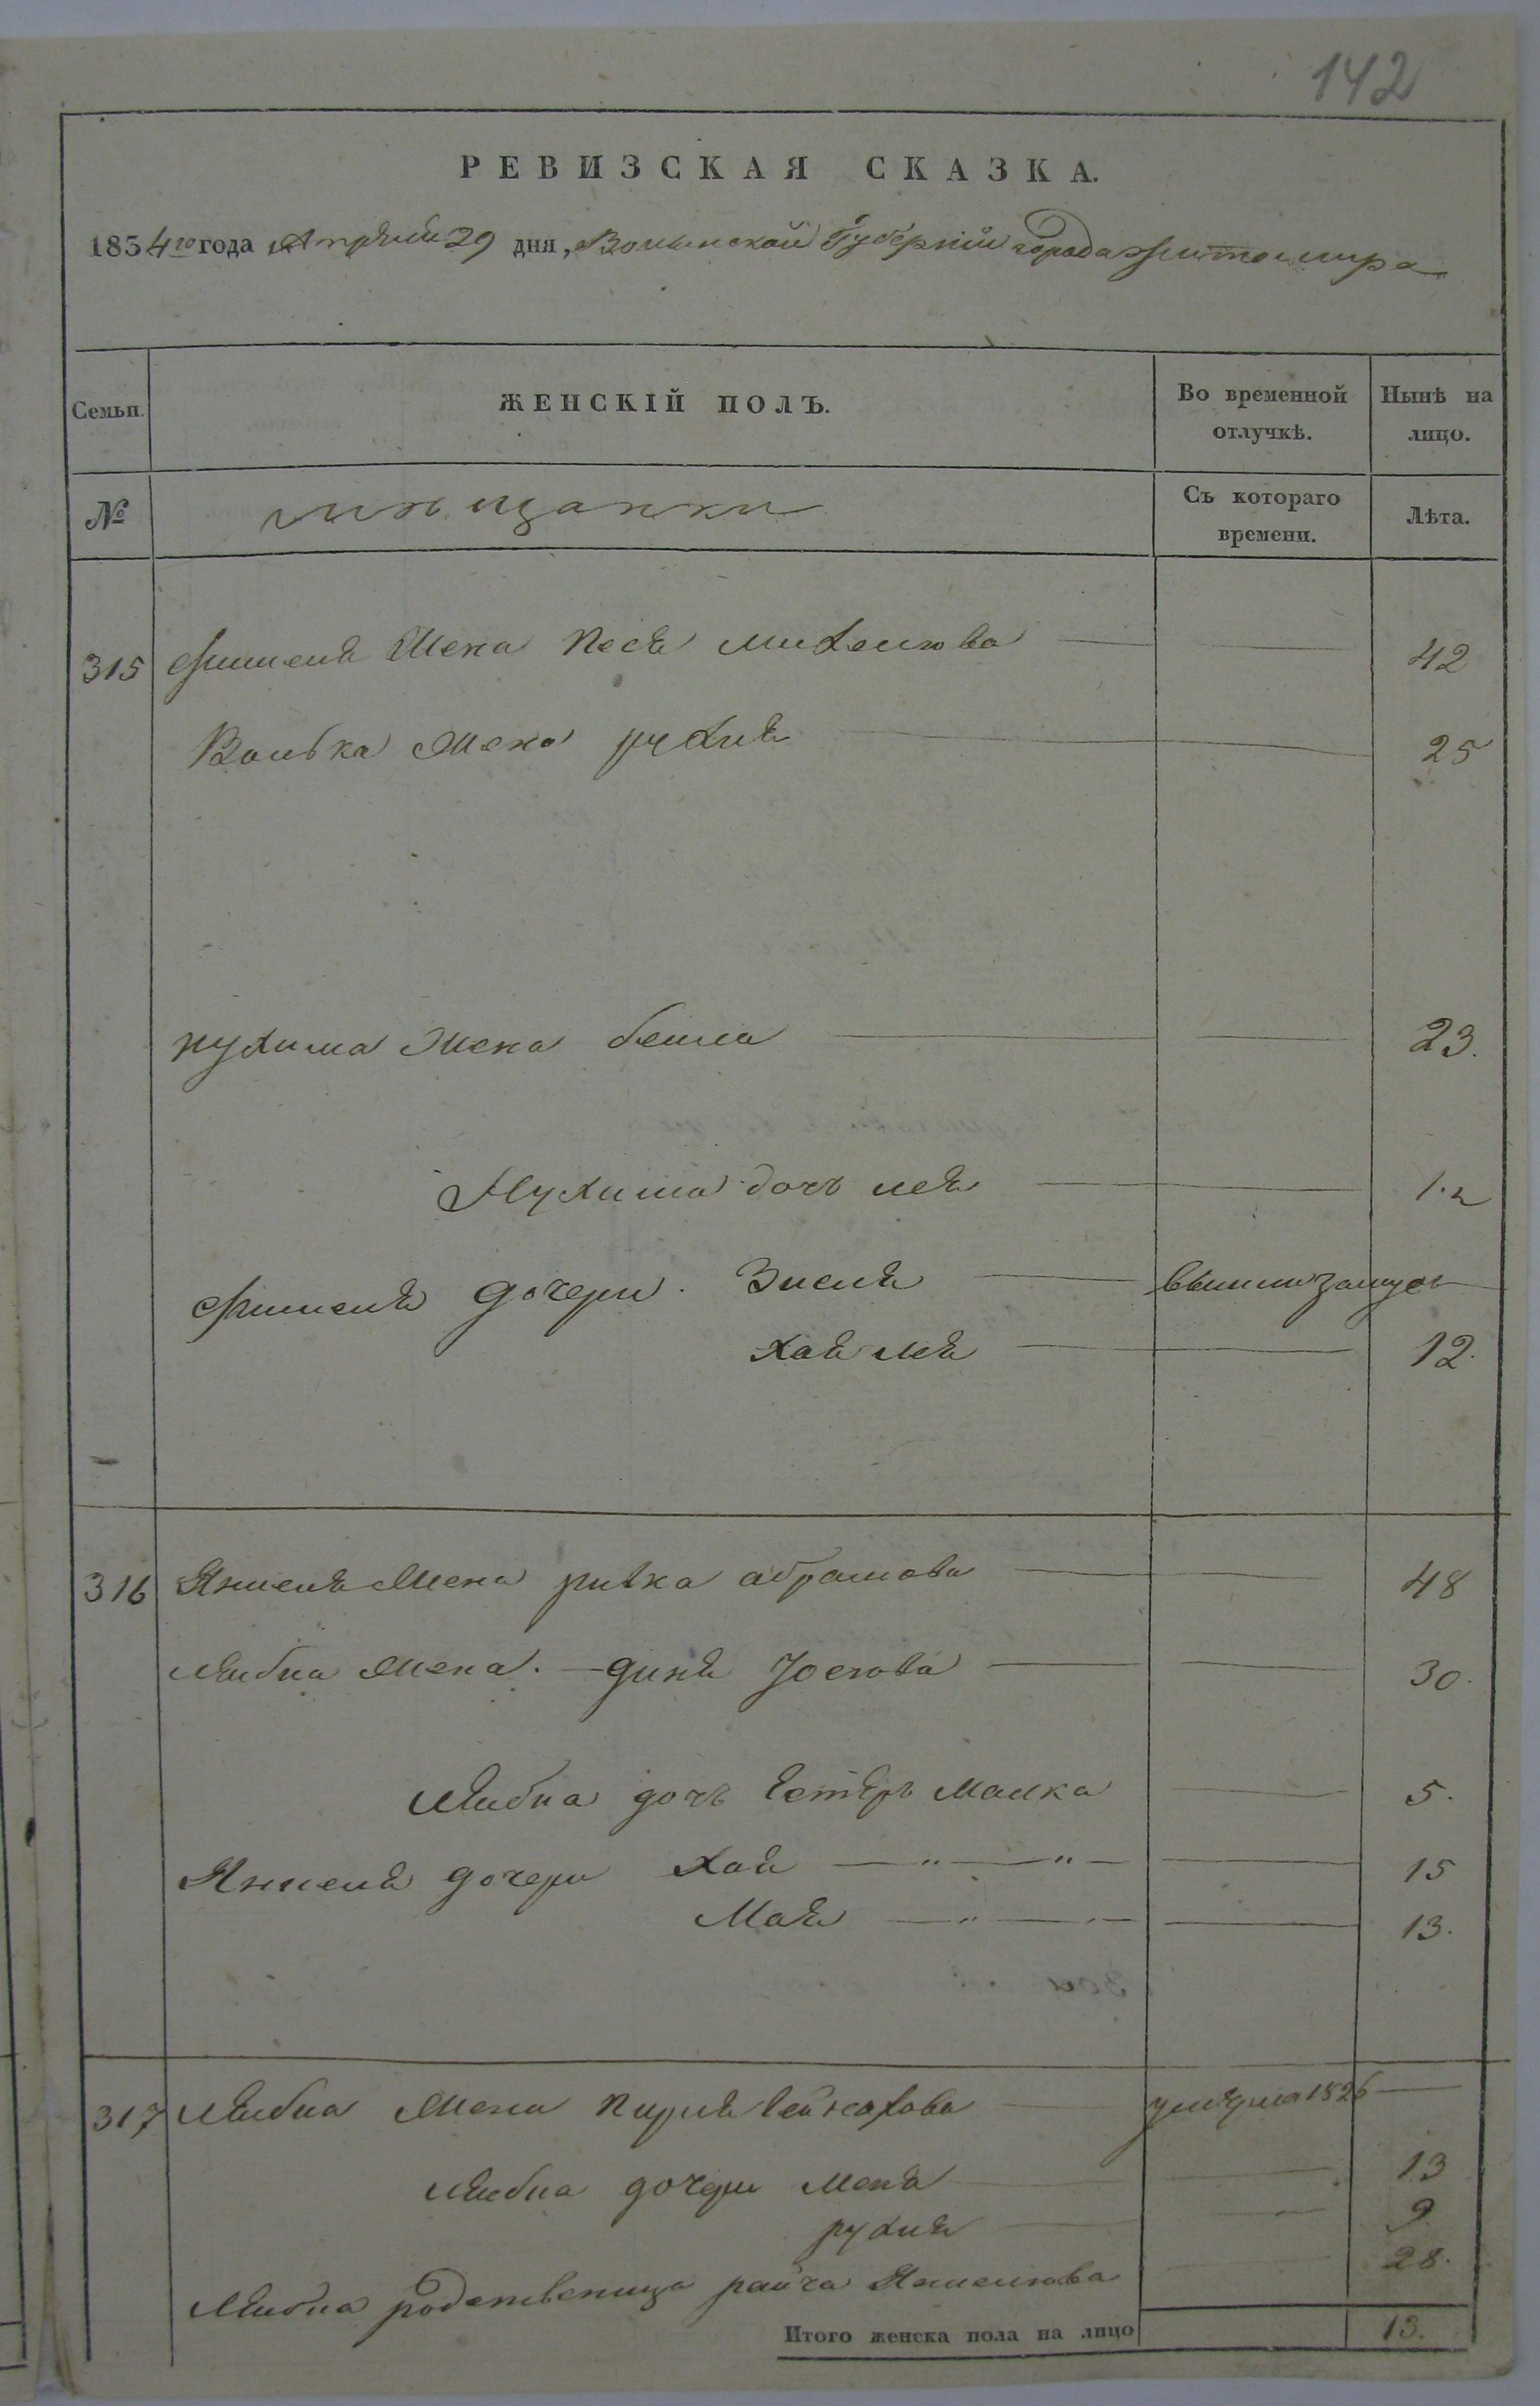 142
РЕВИЗСКАЯ СКАЗКА.
1854го года Апреля 29 дня, Волынской Губерніи города Житомира
Семьи. ЖЕНСКІЙ ПОЛЪ. Во временной отлучкѣ. Нынѣ на лицо.
№ мещанки Съ котораго времени. Лѣта.
315 Фишеля Жена Песя Михелиова 42
Волька Жена рухля 25
нухима Жена бейла 23.
Нухима дочъ лея 1.
Фишеля дочери. Зисля вышла замуж
хая лея 12.
316 Янкеля Жена ривка абрамова 48
Лейбиа Жена. — диня Иоскова 30.
Лейбиа дочъ Естеръ Малка 5.
Янкеля дочери хая — „ — „ — 15
Мая — „ — „ — 13.
317 Лейбиа Жена Пирля умерла 1826
Лейбиа дочери Меня 13
рухля 9.
Лейбиа родственица райча 28.
Итого женска пола на лицо 13.